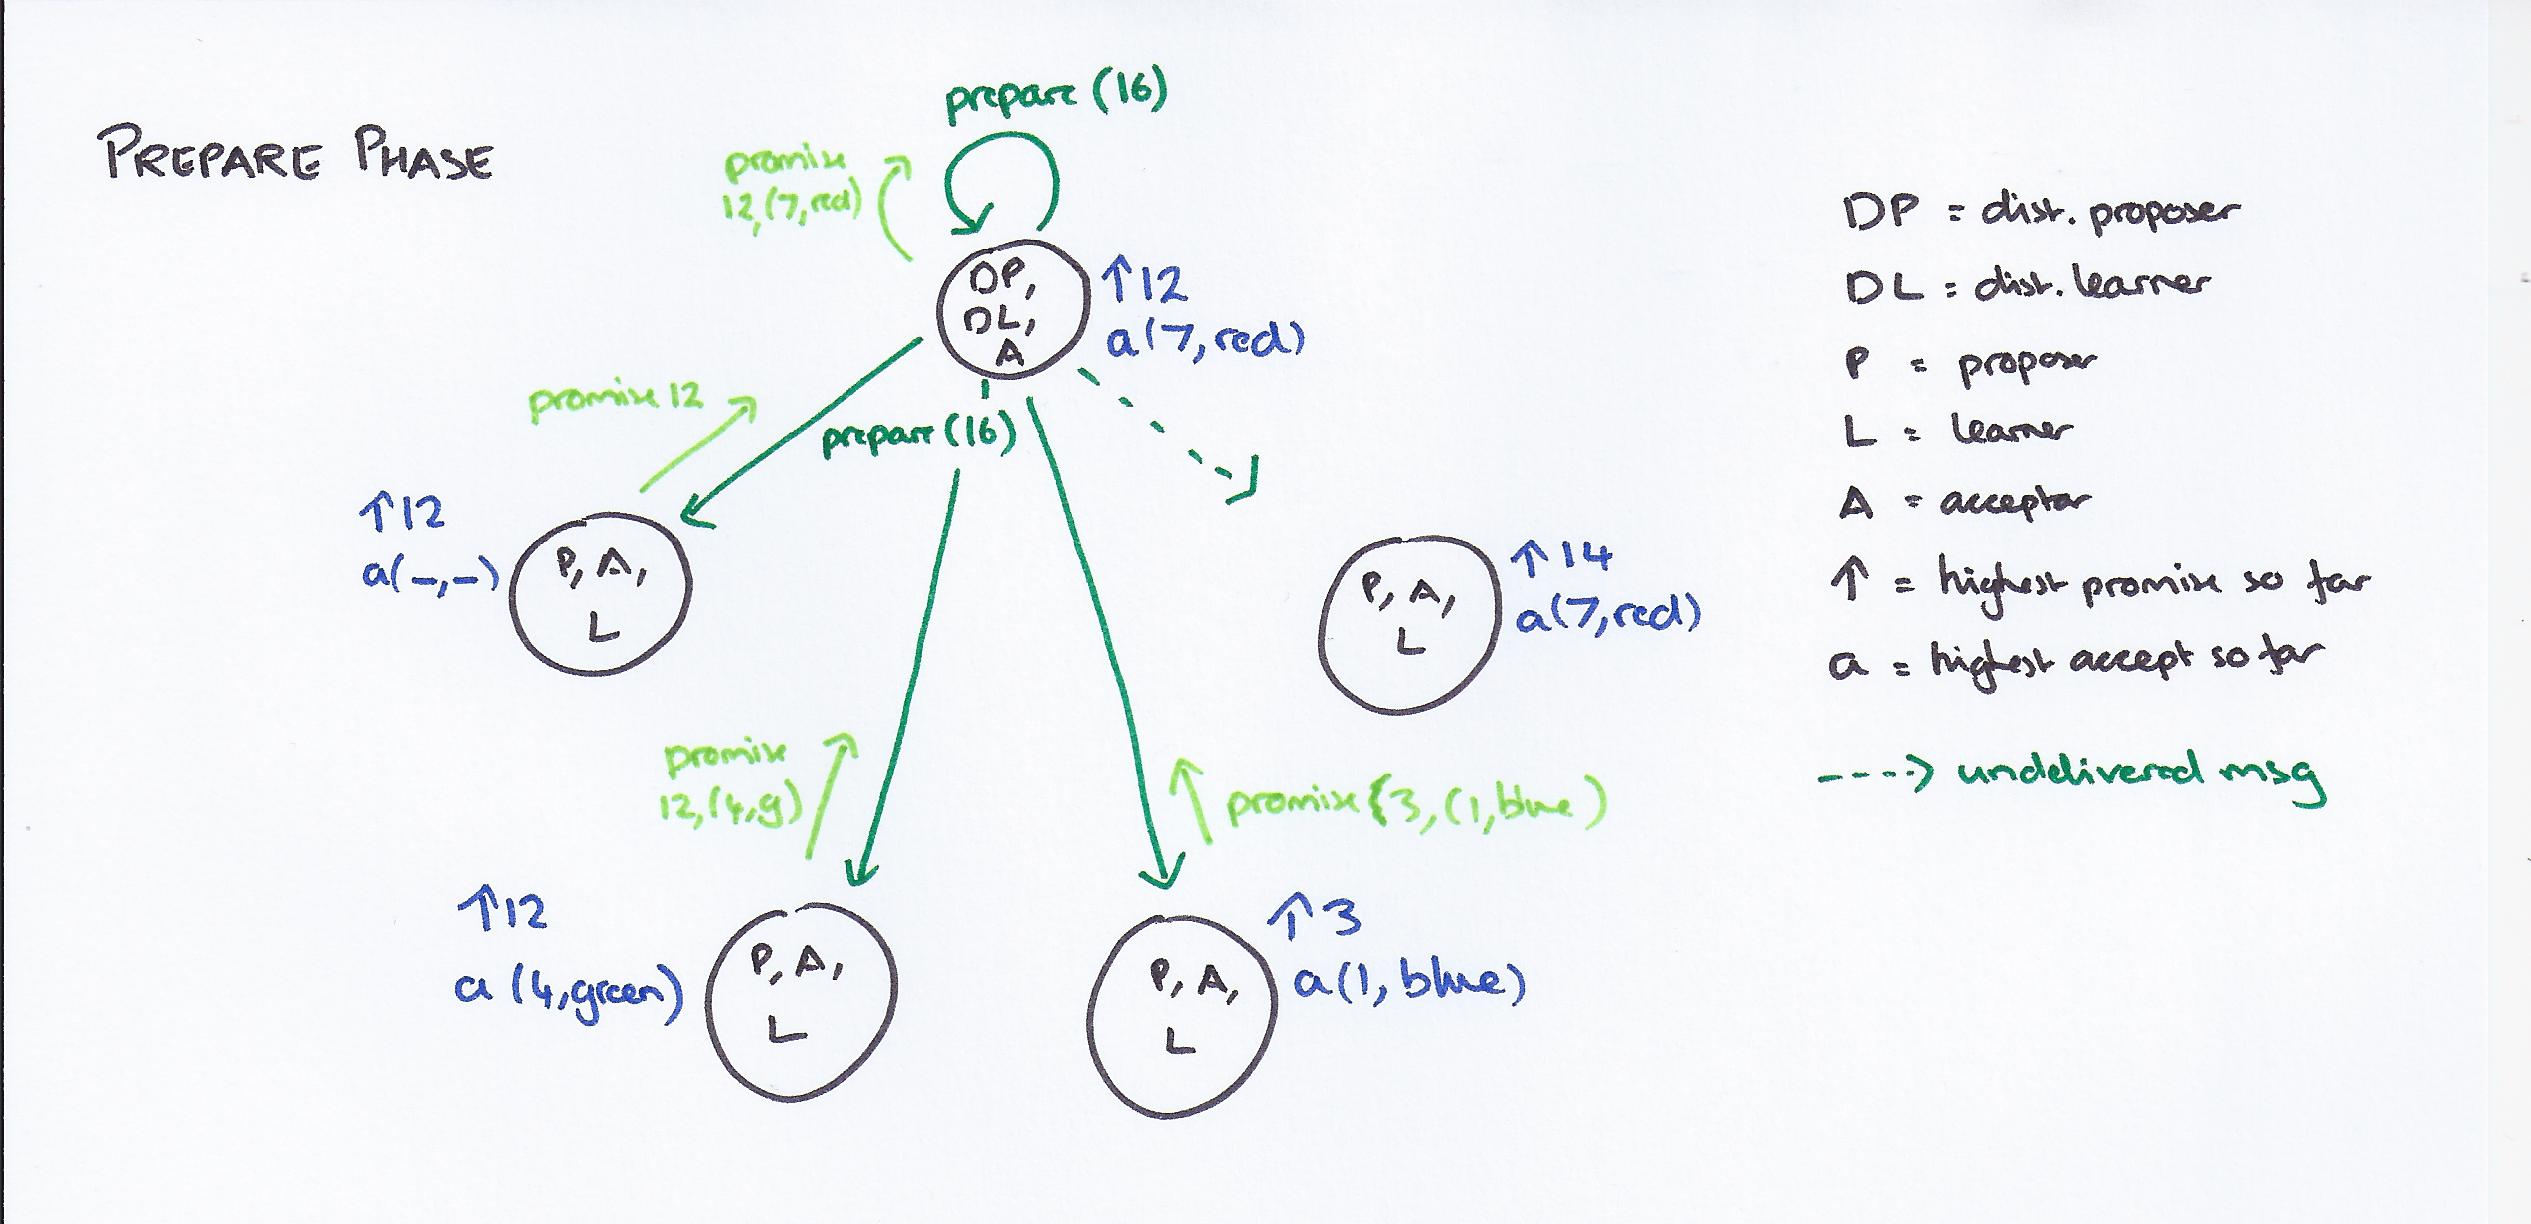 PREPARE PHASE
prepare (16)
promise
12, (7, red)
DP,
DL,
A
↑12
a(7, red)
promise 12
prepare (16)
↑12
a(-,-)
P, A,
L
P, A,
L
↑14
a(7, red)
promise
12, (4, g)
promise {3, (1, blue)
↑12
a (4, green)
P, A,
L
P, A,
L
↑3
a(1, blue)
DP = dist. proposer
DL = dist. learner
P = proposer
L = learner
A = acceptor
↑ = highest promise so far
a = highest accept so far
----> undelivered msg